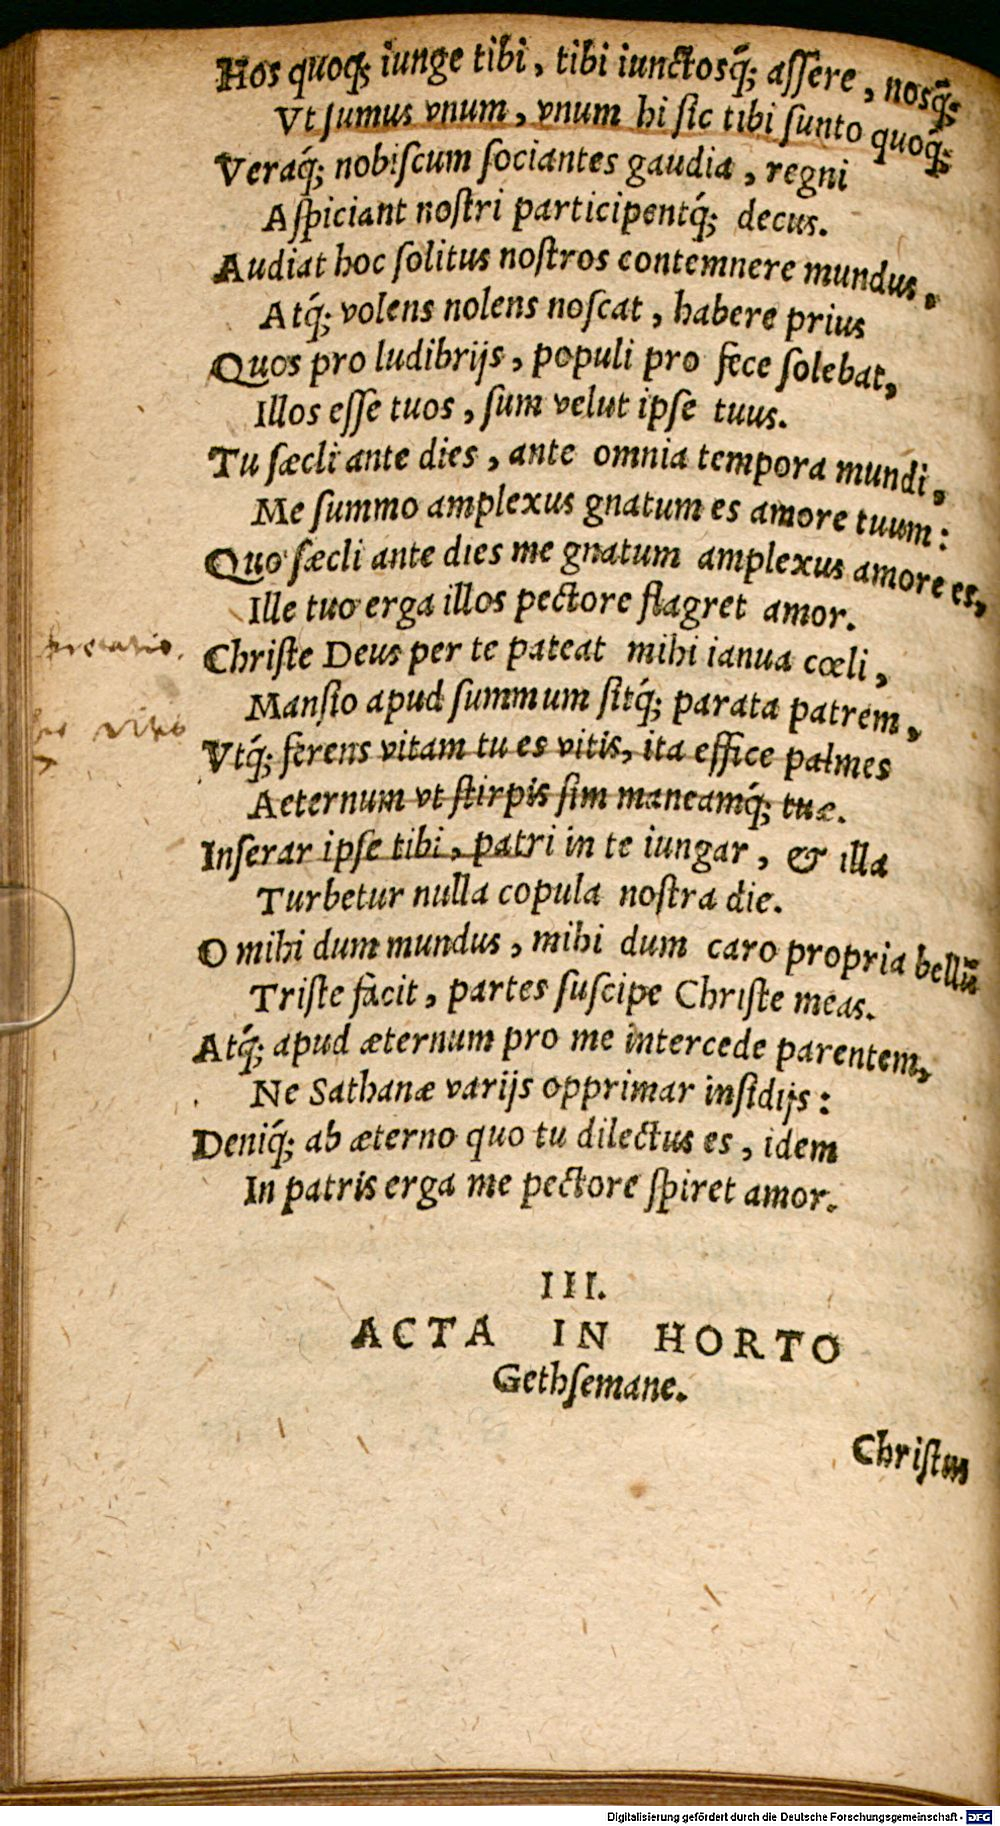 Hos quoq́; iunge tibi, tibi iunctosq́; aſſere, nosq́;
Vt ſumus vnum, vnum hi ſic tibi ſunto quoq́;
Veraq́; nobiſcum ſociantes gaudia, regni
Aſpiciant noſtri participentq́; decus.
Audiat hoc ſolitus noſtros contemnere mundus,
Atq́; volens nolens noſcat, habere prius
Quos pro ludibrijs, populi pro fece ſolebat,
Illos eſſe tuos, ſum velut ipſe tuus.
Tu ſæcli ante dies, ante omnia tempora mundi,
Me ſummo amplexus gnatum es amore tuum:
Quo ſæcli ante dies me gnatum amplexus amore es,
Ille tuo erga illos pectore flagret amor.
precatio.
Chriſte Deus per te pateat mihi ianua cœli,
Manſio apud ſummum ſitq́; parata patrem,
vitis
Vtq́; ferens vitam tu es vitis, ita effice palmes
Aeternum vt ſtirpis ſim maneamq́; tuæ.
Inſerar ipſe tibi, patri in te iungar, & illa
Turbetur nulla copula noſtra die.
O mihi dum mundus, mihi dum caro propria bellū
Triſte facit, partes ſuſcipe Chriſte meas.
Atq́; apud æternum pro me intercede parentem,
Ne Sathanæ varijs opprimar inſidijs:
Deniq́; ab æterno quo tu dilectus es, idem
In patris erga me pectore ſpiret amor.
III.
ACTA IN HORTO
Gethſemane.
Chriſtus
Digitalisierung gefördert durch die Deutsche Forschungsgemeinschaft - DFG